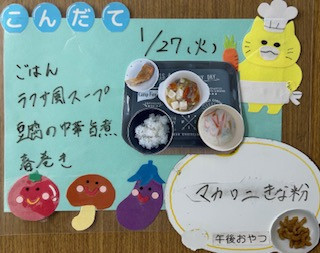 こんだて
1/27(火)
ごはん
ラクサ風スープ
豆腐の中華旨煮
春巻き
マカロニきな粉
午後おやつ